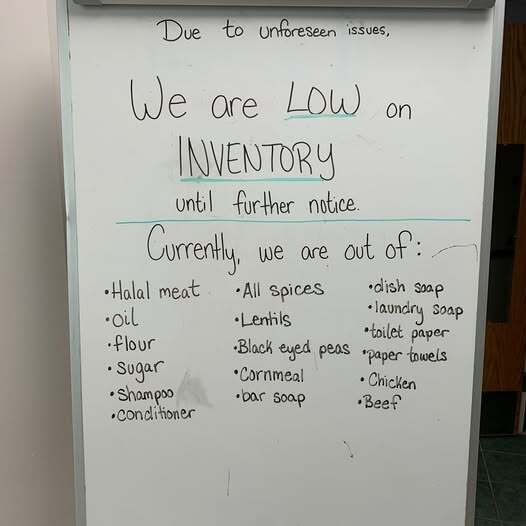 Due to unforeseen issues,
We are LOW on
INVENTORY
until further notice.
Currently, we are out of:
•Halal meat
•Oil
•flour
•sugar
•Shampoo
•conditioner
•All spices
•Lentils
•Black eyed peas
•Cornmeal
•bar soap
•dish soap
•laundry soap
•toilet paper
•paper towels
•Chicken
•Beef